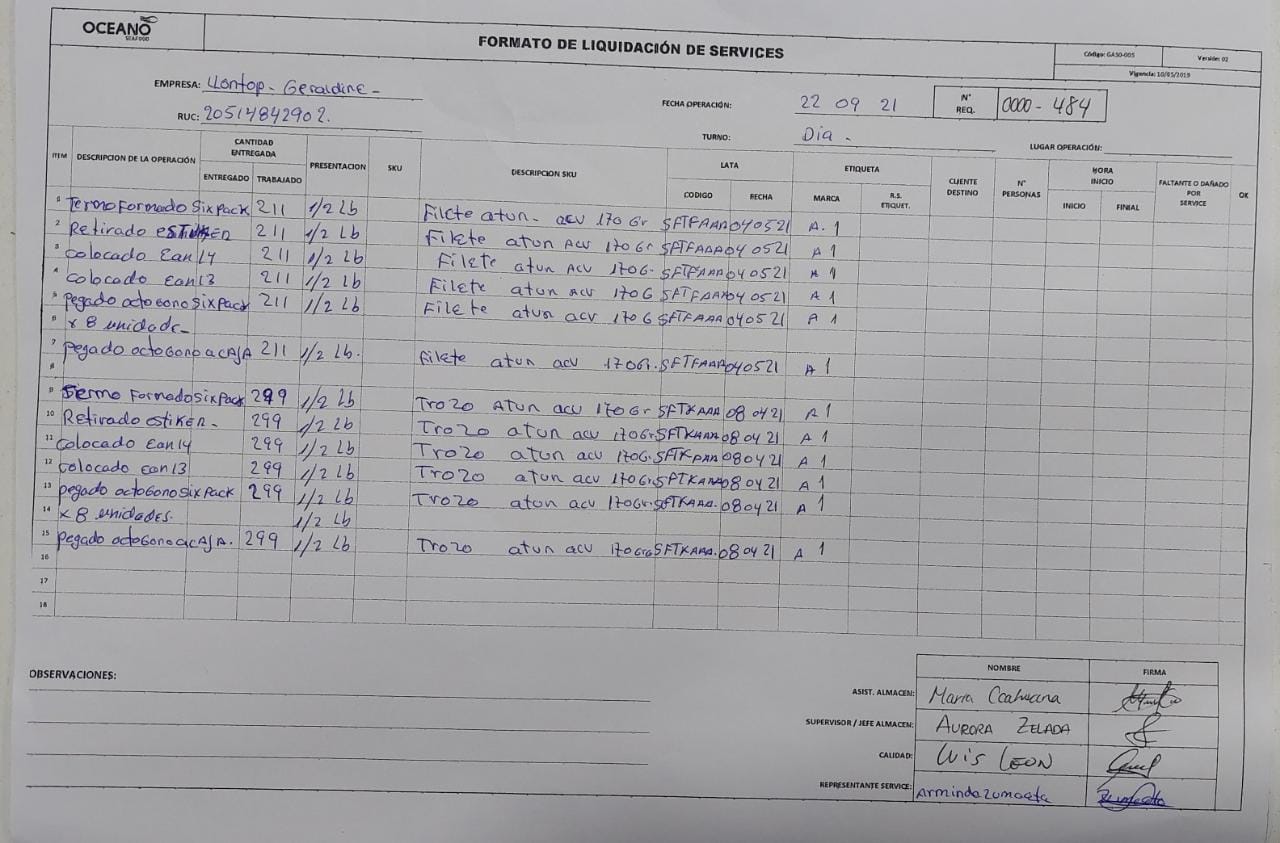 OCEANO
SEAFOOD
FORMATO DE LIQUIDACIÓN DE SERVICES
Código: GASO-005 Versión: 02
Vigencia: 10/05/2019
EMPRESA: Llontop - Geraldine -
RUC: 20514842902.
FECHA OPERACIÓN: 22 09 21 N° REQ. 0000 - 484
TURNO: Dia - LUGAR OPERACIÓN:
ITEM DESCRIPCION DE LA OPERACIÓN CANTIDAD ENTREGADA PRESENTACION SKU DESCRIPCION SKU LATA ETIQUETA CLIENTE DESTINO N° PERSONAS HORA INICIO FALTANTE O DAÑADO POR SERVICE OK
ENTREGADO TRABAJADO CODIGO FECHA MARCA R.S. ETIQUET. INICIO FINIAL
1 Termo Formado Six Pack 211 1/2 Lb Filete atun - acv 170 Gr SFTFAAA 040521 A. 1
2 Retirado 211 1/2 Lb Filete atun Acv 170 Gr SFTFAAA 040521 A 1
3 Colocado Ean 14 211 1/2 Lb Filete atun Acv 170G. SFTFAAA 040521 A 1
4 Colocado Ean 13 211 1/2 Lb Filete atun Acv 170G SFTFAAA 040521 A 1
5 pegado octogono Six Pack 211 1/2 Lb Filete atun acv 170G SFTFAAA 040521 A 1
6 x 8 unidade -
7 pegado octogono a CAJA 211 1/2 Lb. Filete atun acv 170Gr. SFTFAAA 040521 A 1
8
9 Termo Formado Six Pack 299 1/2 Lb Trozo Atun acv 170 Gr SFTKAAA 08 04 21 A 1
10 Retirado estiker - 299 1/2 Lb Trozo atun acv 170Gr. SFTKAAA 08 04 21 A 1
11 Colocado Ean 14 299 1/2 Lb Trozo atun acv 170G. SFTKAAA 08 04 21 A 1
12 Colocado Ean 13 299 1/2 Lb Trozo atun acv 170Gr. SFTKAAA 08 04 21 A 1
13 pegado octogono Six Pack 299 1/2 Lb Trozo atun acv 170Gr. SFTKAAA. 08 04 21 A 1
14 x 8 unidades. 1/2 Lb
15 pegado octogono a CAJA. 299 1/2 Lb Trozo atun acv SFTKAAA. 08 04 21 A 1
16
17
18
OBSERVACIONES:
NOMBRE FIRMA
ASIST. ALMACEN: Maria Ccahuana
SUPERVISOR / JEFE ALMACEN: AURORA ZELADA
CALIDAD: Luis LEON
REPRESENTANTE SERVICE: Arminda Zumaeta